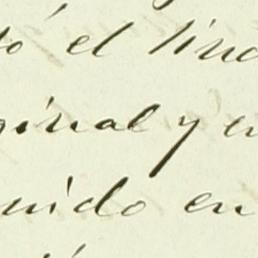 tó el lind
ginal y en
nido en